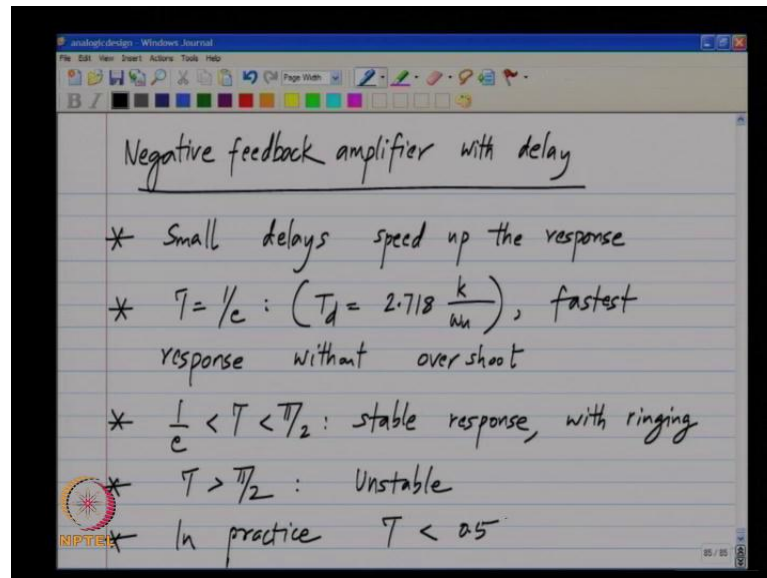 analogicdesign - Windows Journal
File Edit View Insert Actions Tools Help
Page Width
B I
Negative feedback amplifier with delay
* Small delays speed up the response
* T = 1/e : (Td = 2.718 k/ωu), fastest
response without overshoot
* 1/e < T < π/2 : stable response, with ringing
* T > π/2 : Unstable
* In practice T < 0.5
NPTEL
85 / 85